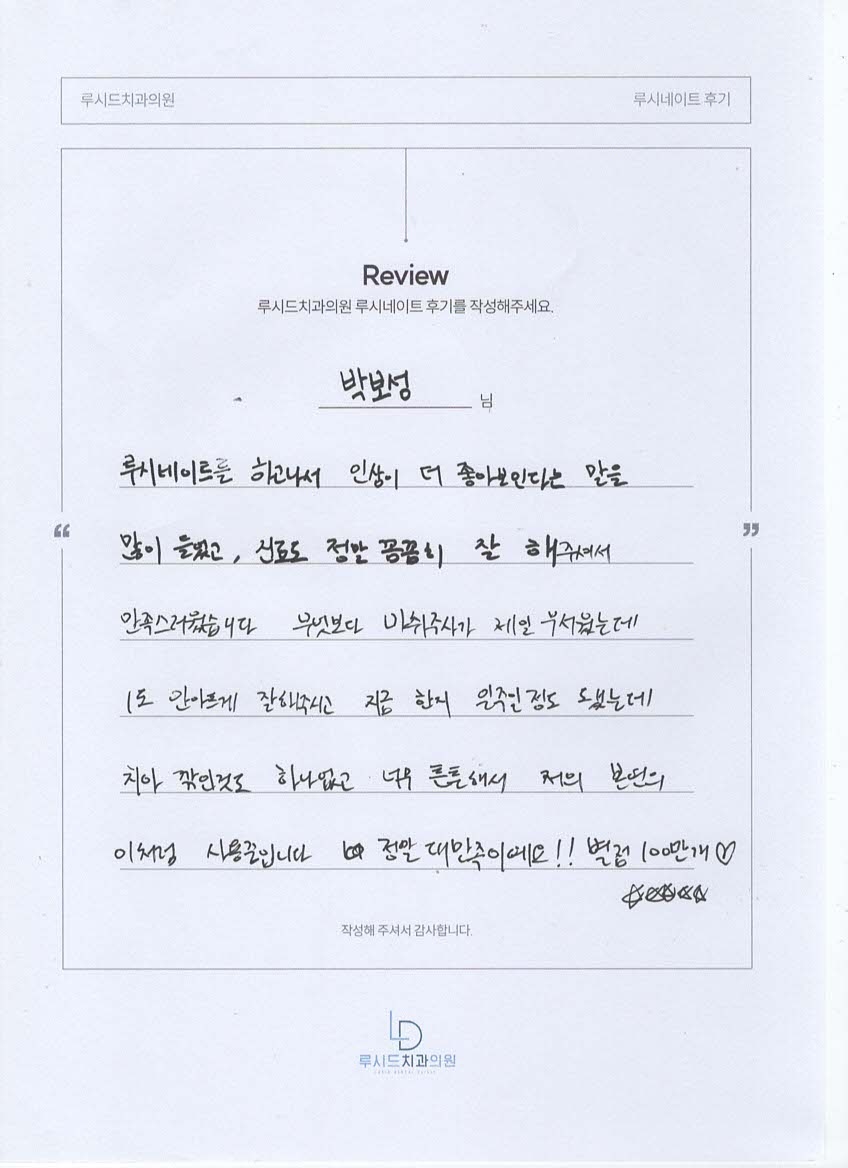 루시드치과의원
루시네이트 후기
Review
루시드치과의원 루시네이트 후기를 작성해주세요.
박보성 님
루시네이트를 하고나서 인상이 더 좋아보인다는 말을
“ ”
많이 들었고, 진료도 정말 꼼꼼히 잘 해주셔서
만족스러웠습니다 무엇보다 마취주사가 제일 무서웠는데
1도 안아프게 잘해주시고 지금 한지 일주일정도 됐는데
치아 깎인것도 하나없고 너무 튼튼해서 저의 본연의
이처럼 사용중입니다 정말 대만족이에요!! 별점 100만개♡
☆☆☆☆☆
작성해 주셔서 감사합니다.
LD
루시드치과의원
LUCID DENTAL CLINIC